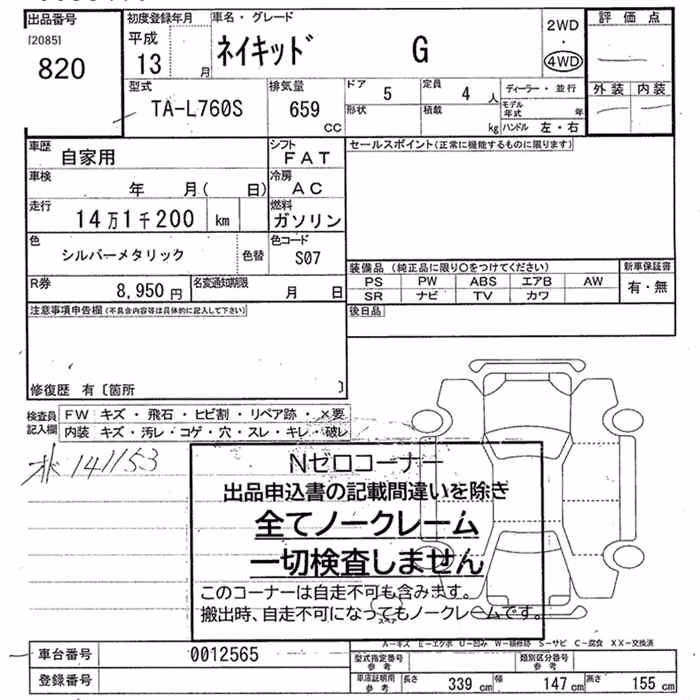 出品番号 初度登録年月 車名・グレード 2WD 評価点
[2085] 平成 ネイキッド G ・
820 13 月 4WD
型式 排気量 ドア 5 定員 4 人 ディーラー・並行 外装 内装
TA-L760S 659 CC 形状 積載 kg モデル年式 年
ハンドル 左・右
車歴 自家用 シフト FAT セールスポイント(正常に機能するものに限ります)
車検 年 月( 日) 冷房 AC
走行 14万1千200 km 燃料 ガソリン
色 シルバーメタリック 色替 色コード S07
装備品 (純正品に限り○をつけてください) 新車保証書
R券 8,950円 名変通知期限 月 日 PS PW ABS エアB AW 有・無
SR ナビ TV カワ
注意事項申告欄(不具合内容等は具体的に記入して下さい) 後日品
修復歴 有〔箇所 〕
検査員記入欄 FW キズ・飛石・ヒビ割・リペア跡・×要
内装 キズ・汚レ・コゲ・穴・スレ・キレ・破レ
141153
Nゼロコーナー
出品申込書の記載間違いを除き
全てノークレーム
一切検査しません
このコーナーは自走不可も含みます。
搬出時、自走不可になってもノークレームです。
A-キズ E-エクボ U-凹み W-補修跡 S-サビ C-腐食 XX-交換済
車台番号 0012565 型式指定番号 参考 類別区分番号 参考
登録番号 車庫証明用 参考 長さ 339 cm 幅 147 cm 高さ 155 cm